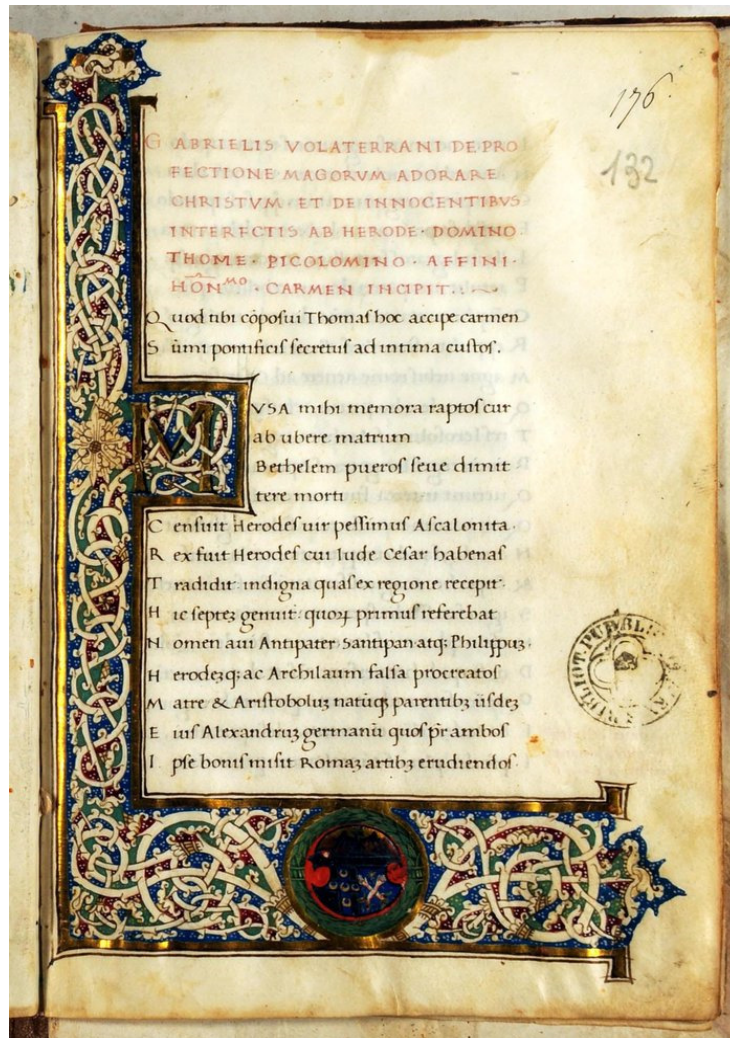 176
132
GABRIELIS VOLATERRANI DE PRO
FECTIONE MAGORVM ADORARE
CHRISTVM · ET DE INNOCENTIBVS
INTERFCTIS AB HERODE · DOMINO
THOME · PICOLOMINO · AFFINI ·
HOÑ^MO · CARMEN INCIPIT
Quod tibi cōposui Thomas hoc accipe carmen
Sūmi pontificis secretus ad intima custos.
MVSA mihi memora raptos cur
ab ubere matrum
Bethelem pueros seue dimit
tere morti
Censuit Herodes uir pessimus Ascalonita ·
Rex fuit Herodes cui Iude Cesar habenas
Tradidit indigna quas ex regione recepit ·
Hic septeꝫ genuit: quoꝝ primus referebat
Nomen aui Antipater Santipan atqꝫ Philippuꝫ ·
Herodeꝫqꝫ ac Archilaum falsa procreatos
Matre & Aristoboluꝫ natūqꝫ parentibꝫ iisdeꝫ
Eius Alexandruꝫ germanū quos pr̄ ambos
Ipse bonis misit Romaꝫ artibꝫ erudiendos ·